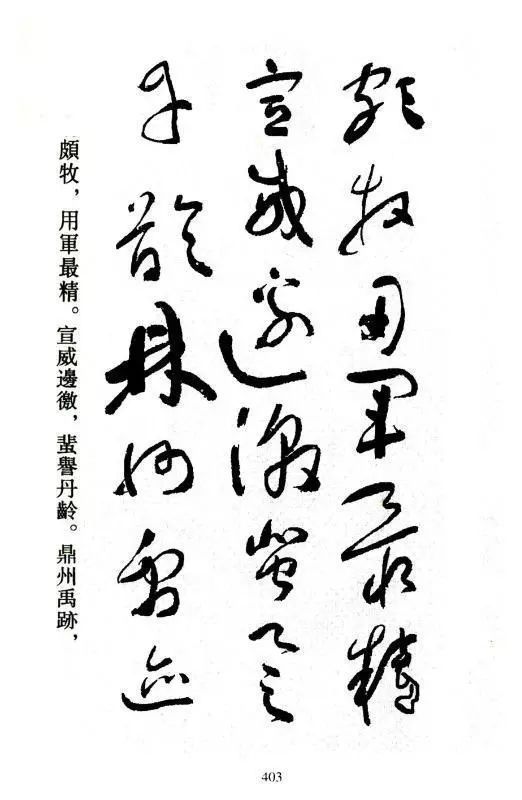 頗牧用軍最精
宣威邊徼蜚譽
丹齡鼎州禹迹
頗牧，用軍最精。宣威邊徼，蜚譽丹齡。鼎州禹跡，
403